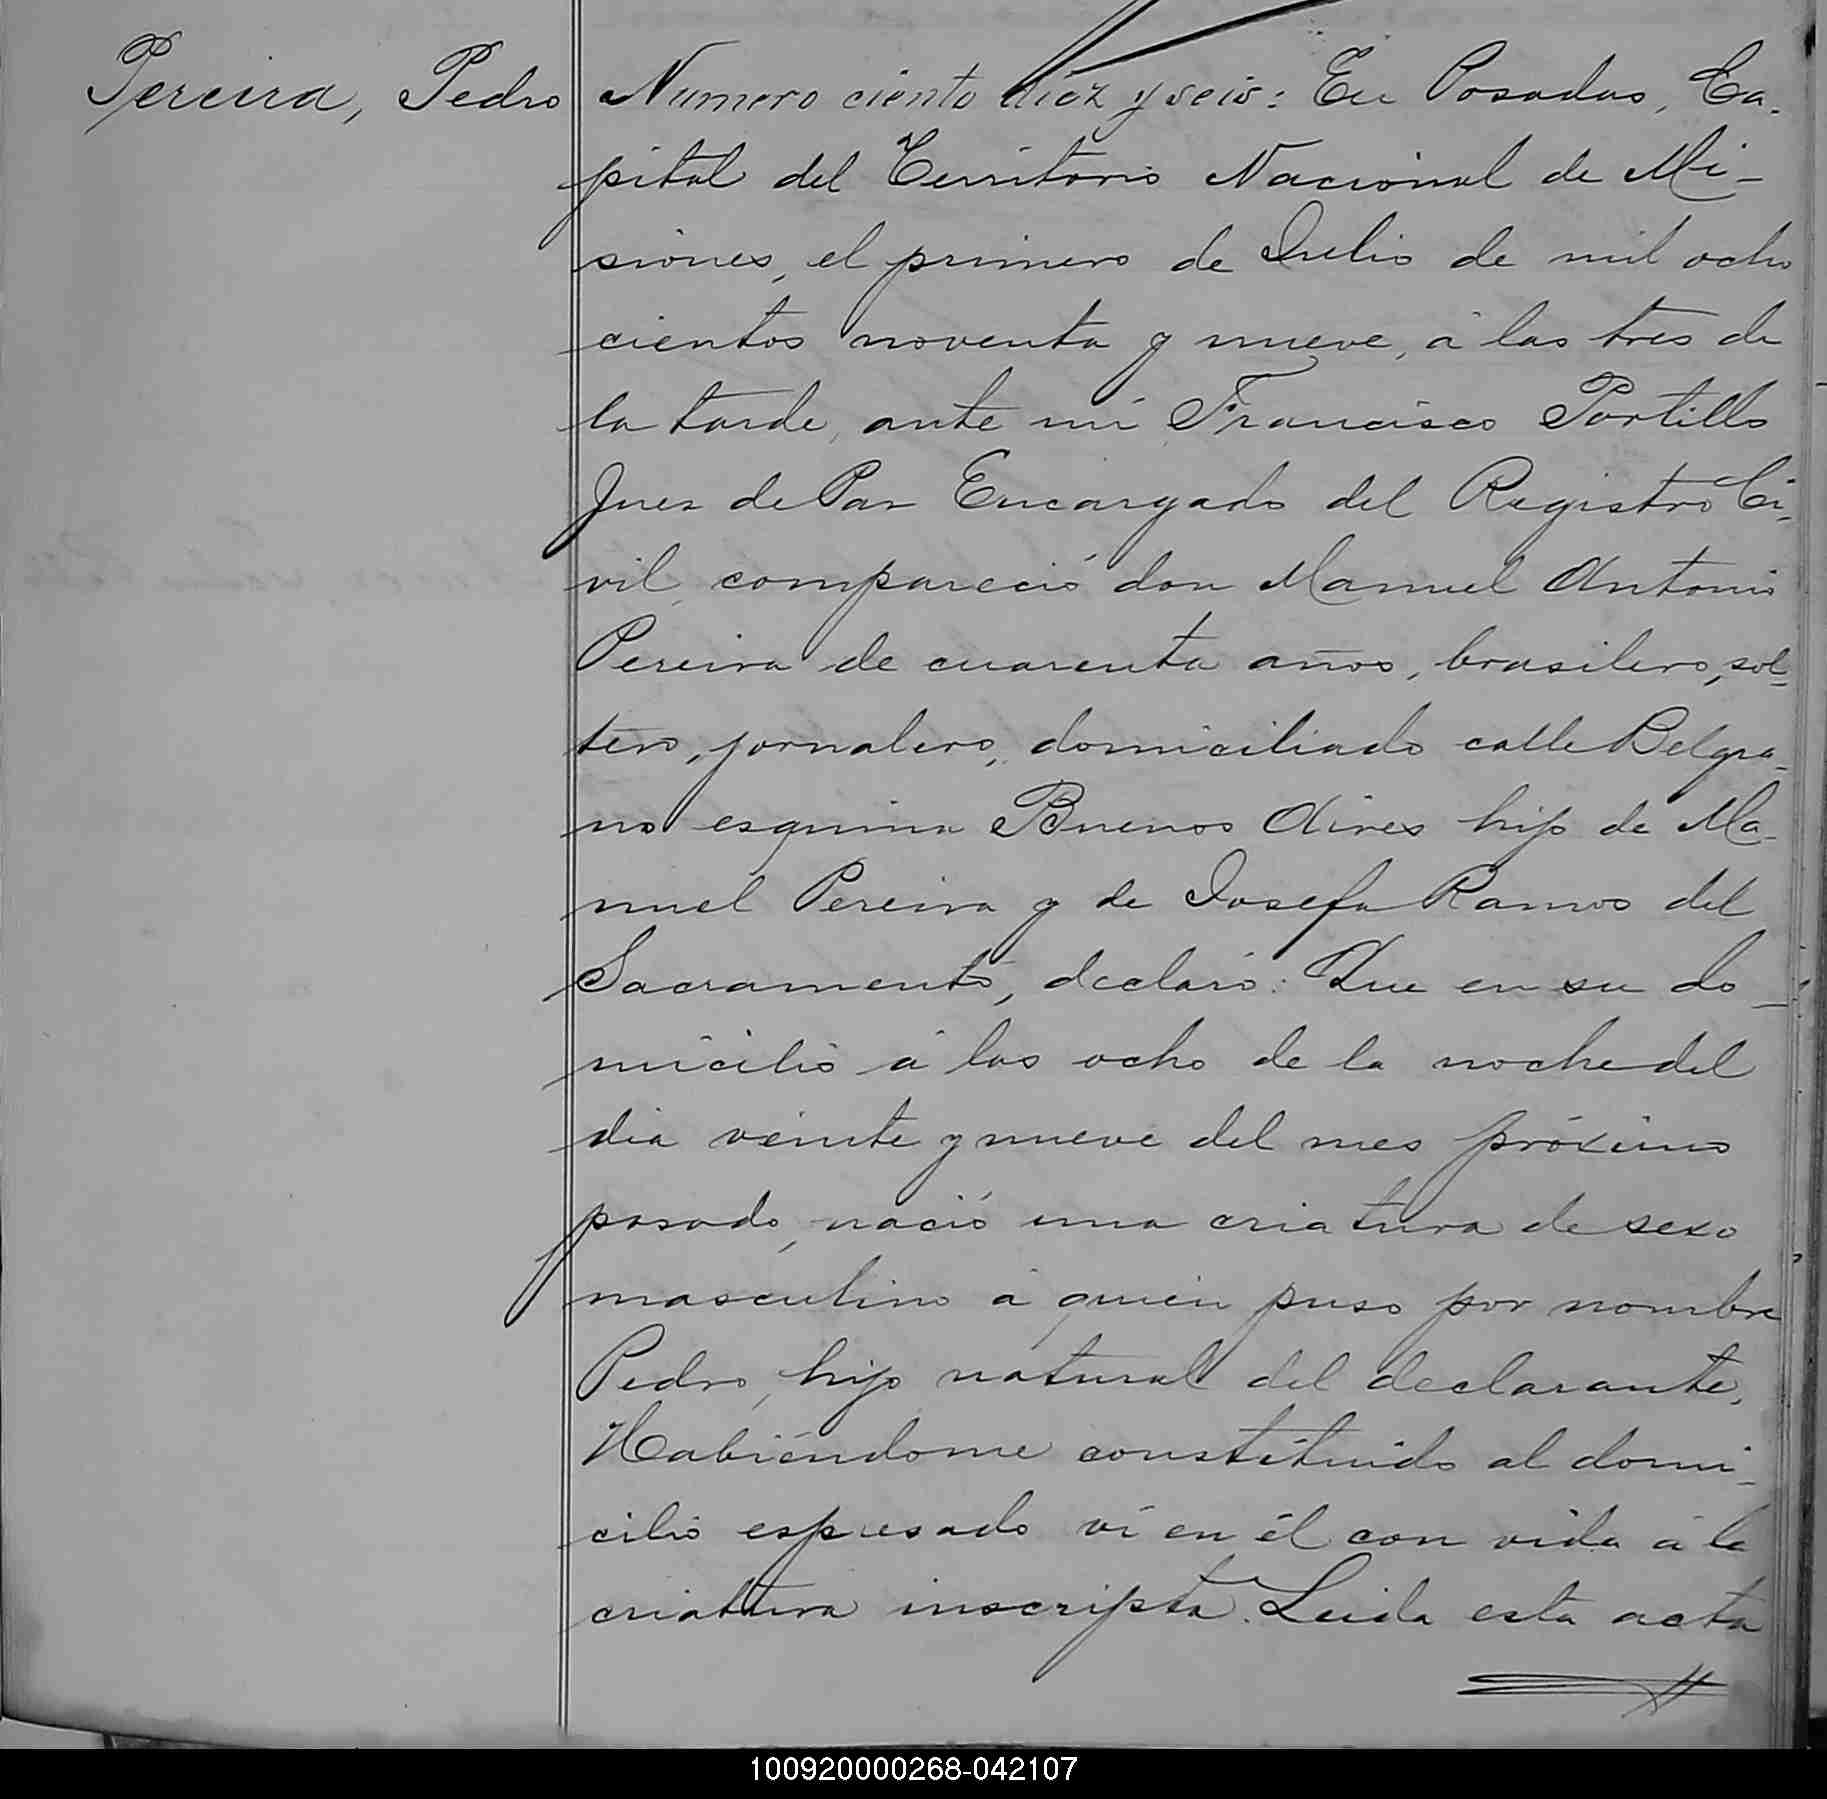 Pereira, Pedro
Numero ciento diez y seis: En Posadas, Ca-
pital del Territorio Nacional de Mi-
siones, el primero de Julio de mil ocho
cientos noventa y nueve, á las tres de
la tarde, ante mí Francisco Portillo
Juez de Paz Encargado del Registro Ci-
vil, compareció don Manuel Antonio
Pereira de cuarenta años, brasilero, sol-
tero, jornalero, domiciliado calle Belgra-
no esquina Buenos Aires hijo de Ma-
nuel Pereira y de Josefa Ramos del
Sacramento, declaró: Que en su do-
micilio á las ocho de la noche del
dia veinte y nueve del mes próximo
pasado, nació una criatura de sexo
masculino á quien puso por nombre
Pedro, hijo natural del declarante.
Habiéndome constituido al domi-
cilio espresado ví en él con vida á la
criatura inscripta. Leida esta acta
100920000268-042107